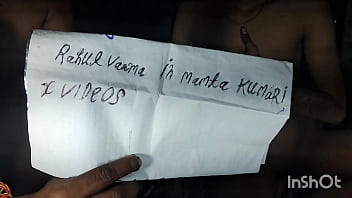 Rahul Varma in Mamta Kumari
X VIDEOS
InShOt